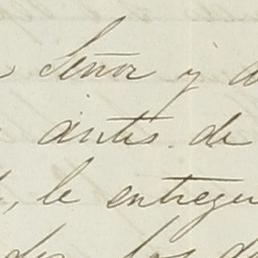 Señor y
antes de
, le entregue
los